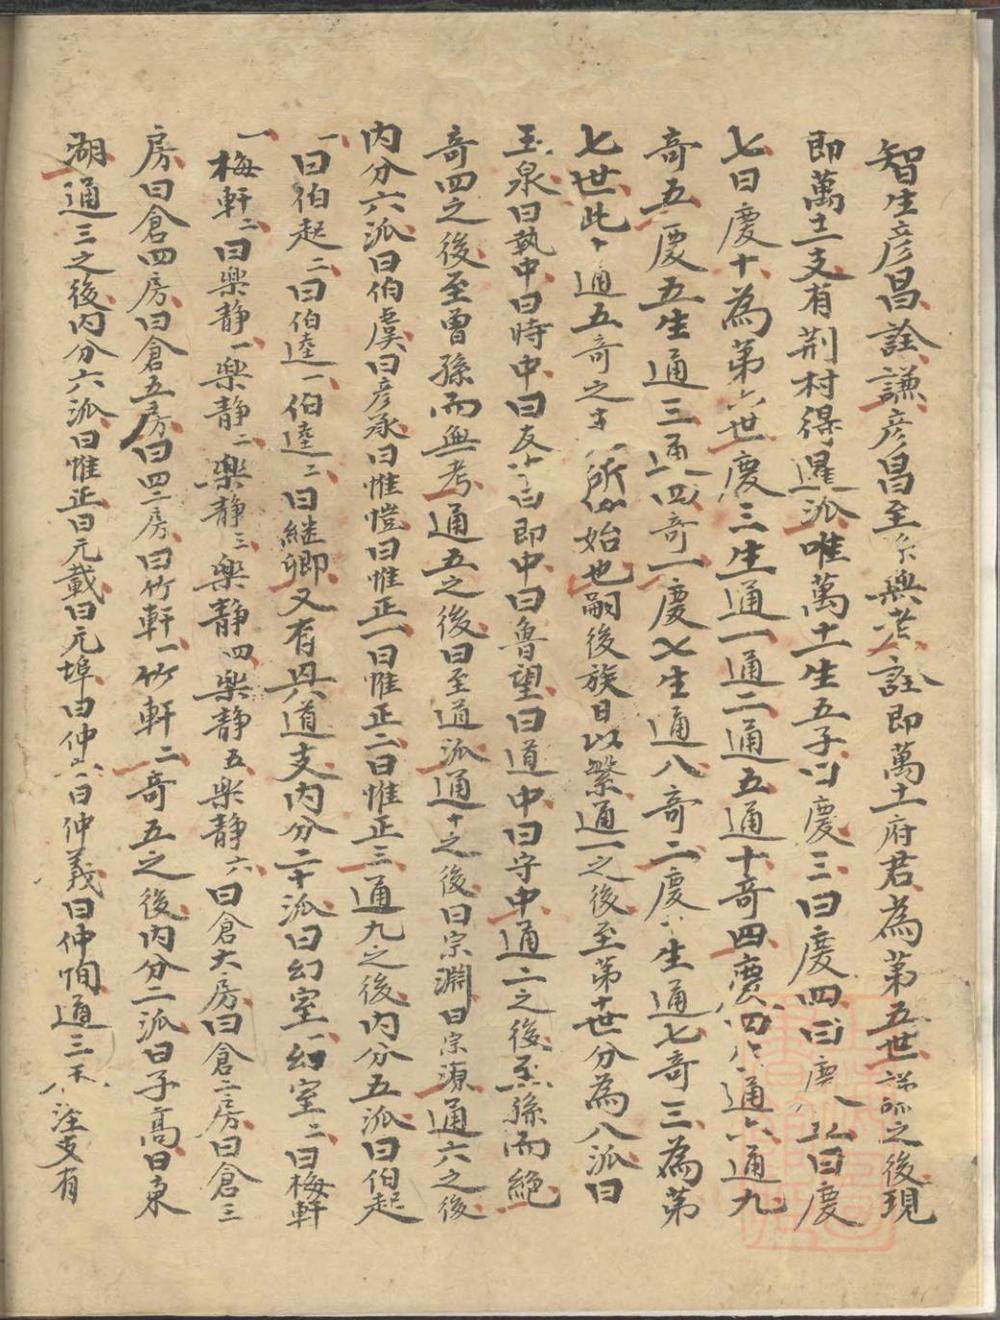 智生彦昌詮謙彦昌至無考詮即萬土府君為第五世諸派之後現
即萬土支有荆村得暹派唯萬土生五子曰慶三曰慶四曰慶八曰慶
七曰慶十為第六世慶三生通一通二通五通十奇四慶四通六通九
奇五慶五生通三通四奇一慶七生通八奇二慶生通七奇三為第
七世此十通五奇之所始也嗣後族日以繁通一之後至第十世分為八派曰
玉泉曰執中曰時中曰友中曰即中曰魯望曰道中曰守中通二之後至孫而絕
奇四之後至曾孫而無考通五之後曰至道派通十之後曰宗淵曰宗源通六之後
内分六派曰伯虞曰彦承曰惟愷曰惟正一曰惟正二曰惟正三通九之後内分五派曰伯起
一曰伯起二曰伯逵一伯逵二曰継卿又有具道支内分二十派曰幻室一幻室二曰梅軒
一梅軒二曰樂静一樂静二樂静三樂静四樂静五樂静六曰倉大房曰倉二房曰倉三
房曰倉四房曰倉五房曰四二房曰竹軒一竹軒二奇五之後内分二派曰子高曰東
湖通三之後内分六派曰惟正曰元載曰元埠曰仲曰仲義曰仲恂通三支有